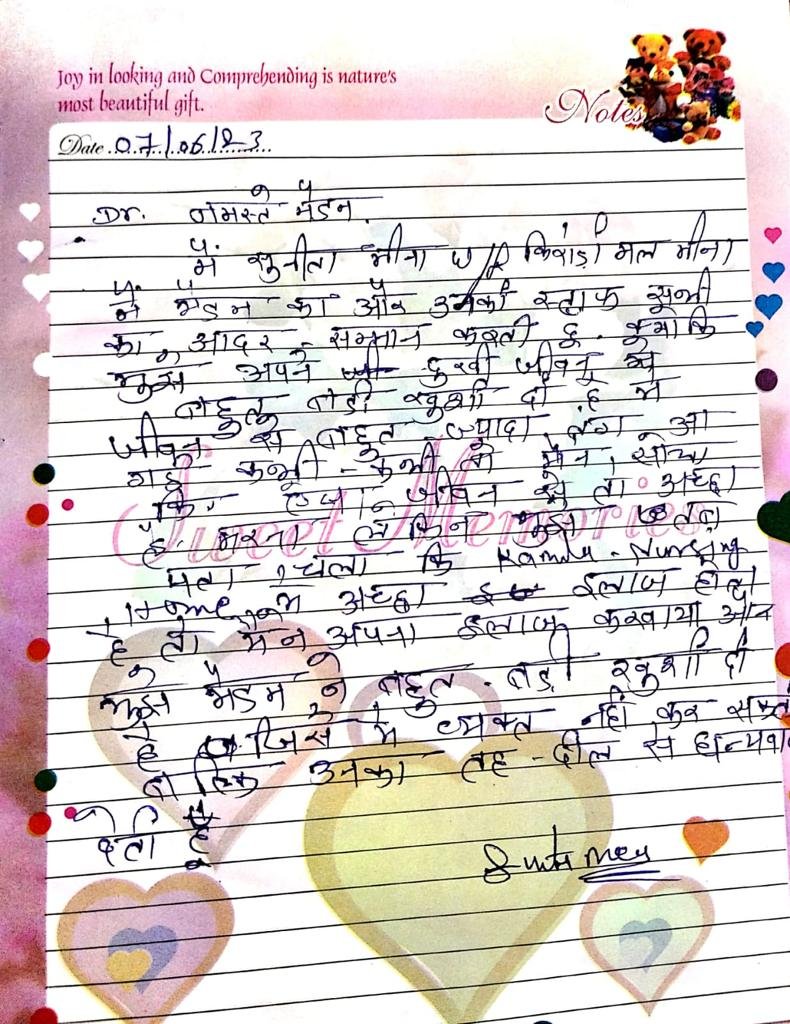 Joy in looking and Comprehending is nature's
most beautiful gift.
Notes
Date 07/06/23
Dr. नमस्ते मैडम.
मैं सुनीता मीना W/o किरोड़ी मल मीना
मैं मैडम का और उनकी स्टाफ सभी
का आदर-सम्मान करती हूं. क्योंकि
मुझे अपने दुखी जीवन मे
बहुत बड़ी खुशी दी है मैं
जीवन से बहुत ज्यादा तंग आ
गई कभी-कभी तो मैंने सोचा
कि जीवन से तो अच्छा
है मरना लेकिन मुझे
पता चला कि Kamla-Nursing
Home में अच्छा इलाज होता
है तो मैंने अपना इलाज करवाया और
मुझे मैडम ने बहुत-बड़ी खुशी दी
है जिसे मैं व्यक्त नहीं कर सकती
बल्कि उनका तह-दील से धन्यवाद
देती हूँ
Sweet Memories